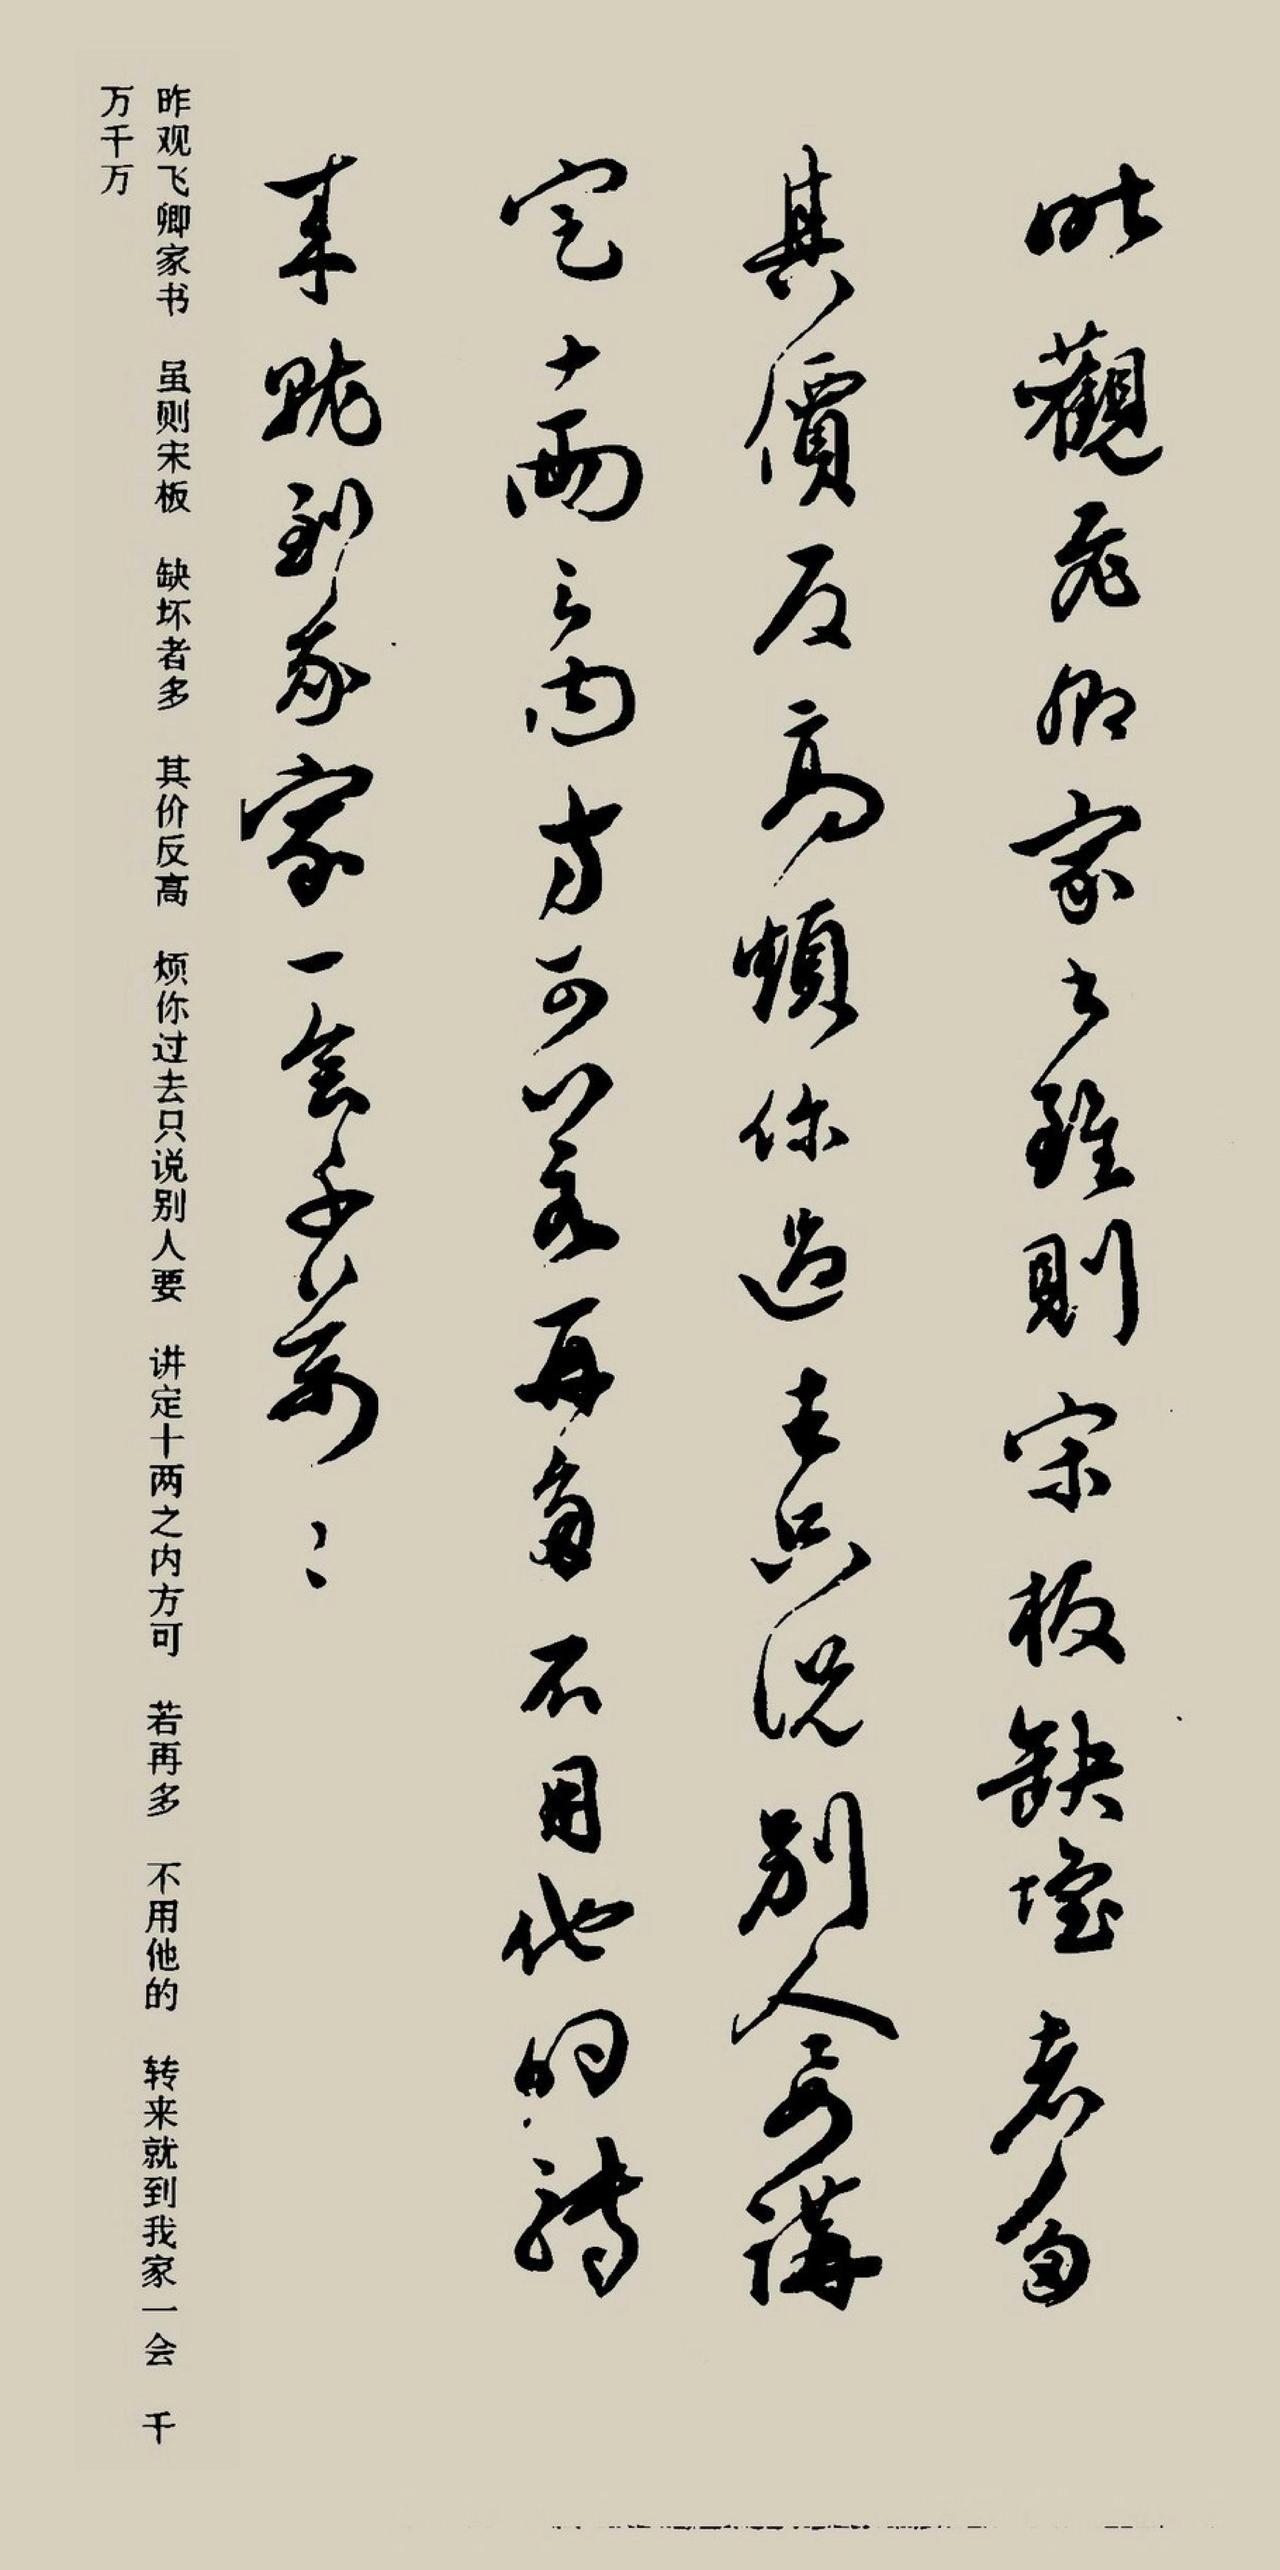 昨觀飛卿家書雖則宋板缺壞者多
其價反高煩你過去只說別人要講
定十兩之內方可若再多不用他的轉
來就到我家一會千萬千萬
昨观飞卿家书 虽则宋板 缺坏者多 其价反高 烦你过去只说别人要 讲定十两之内方可 若再多 不用他的 转来就到我家一会 千
万千万